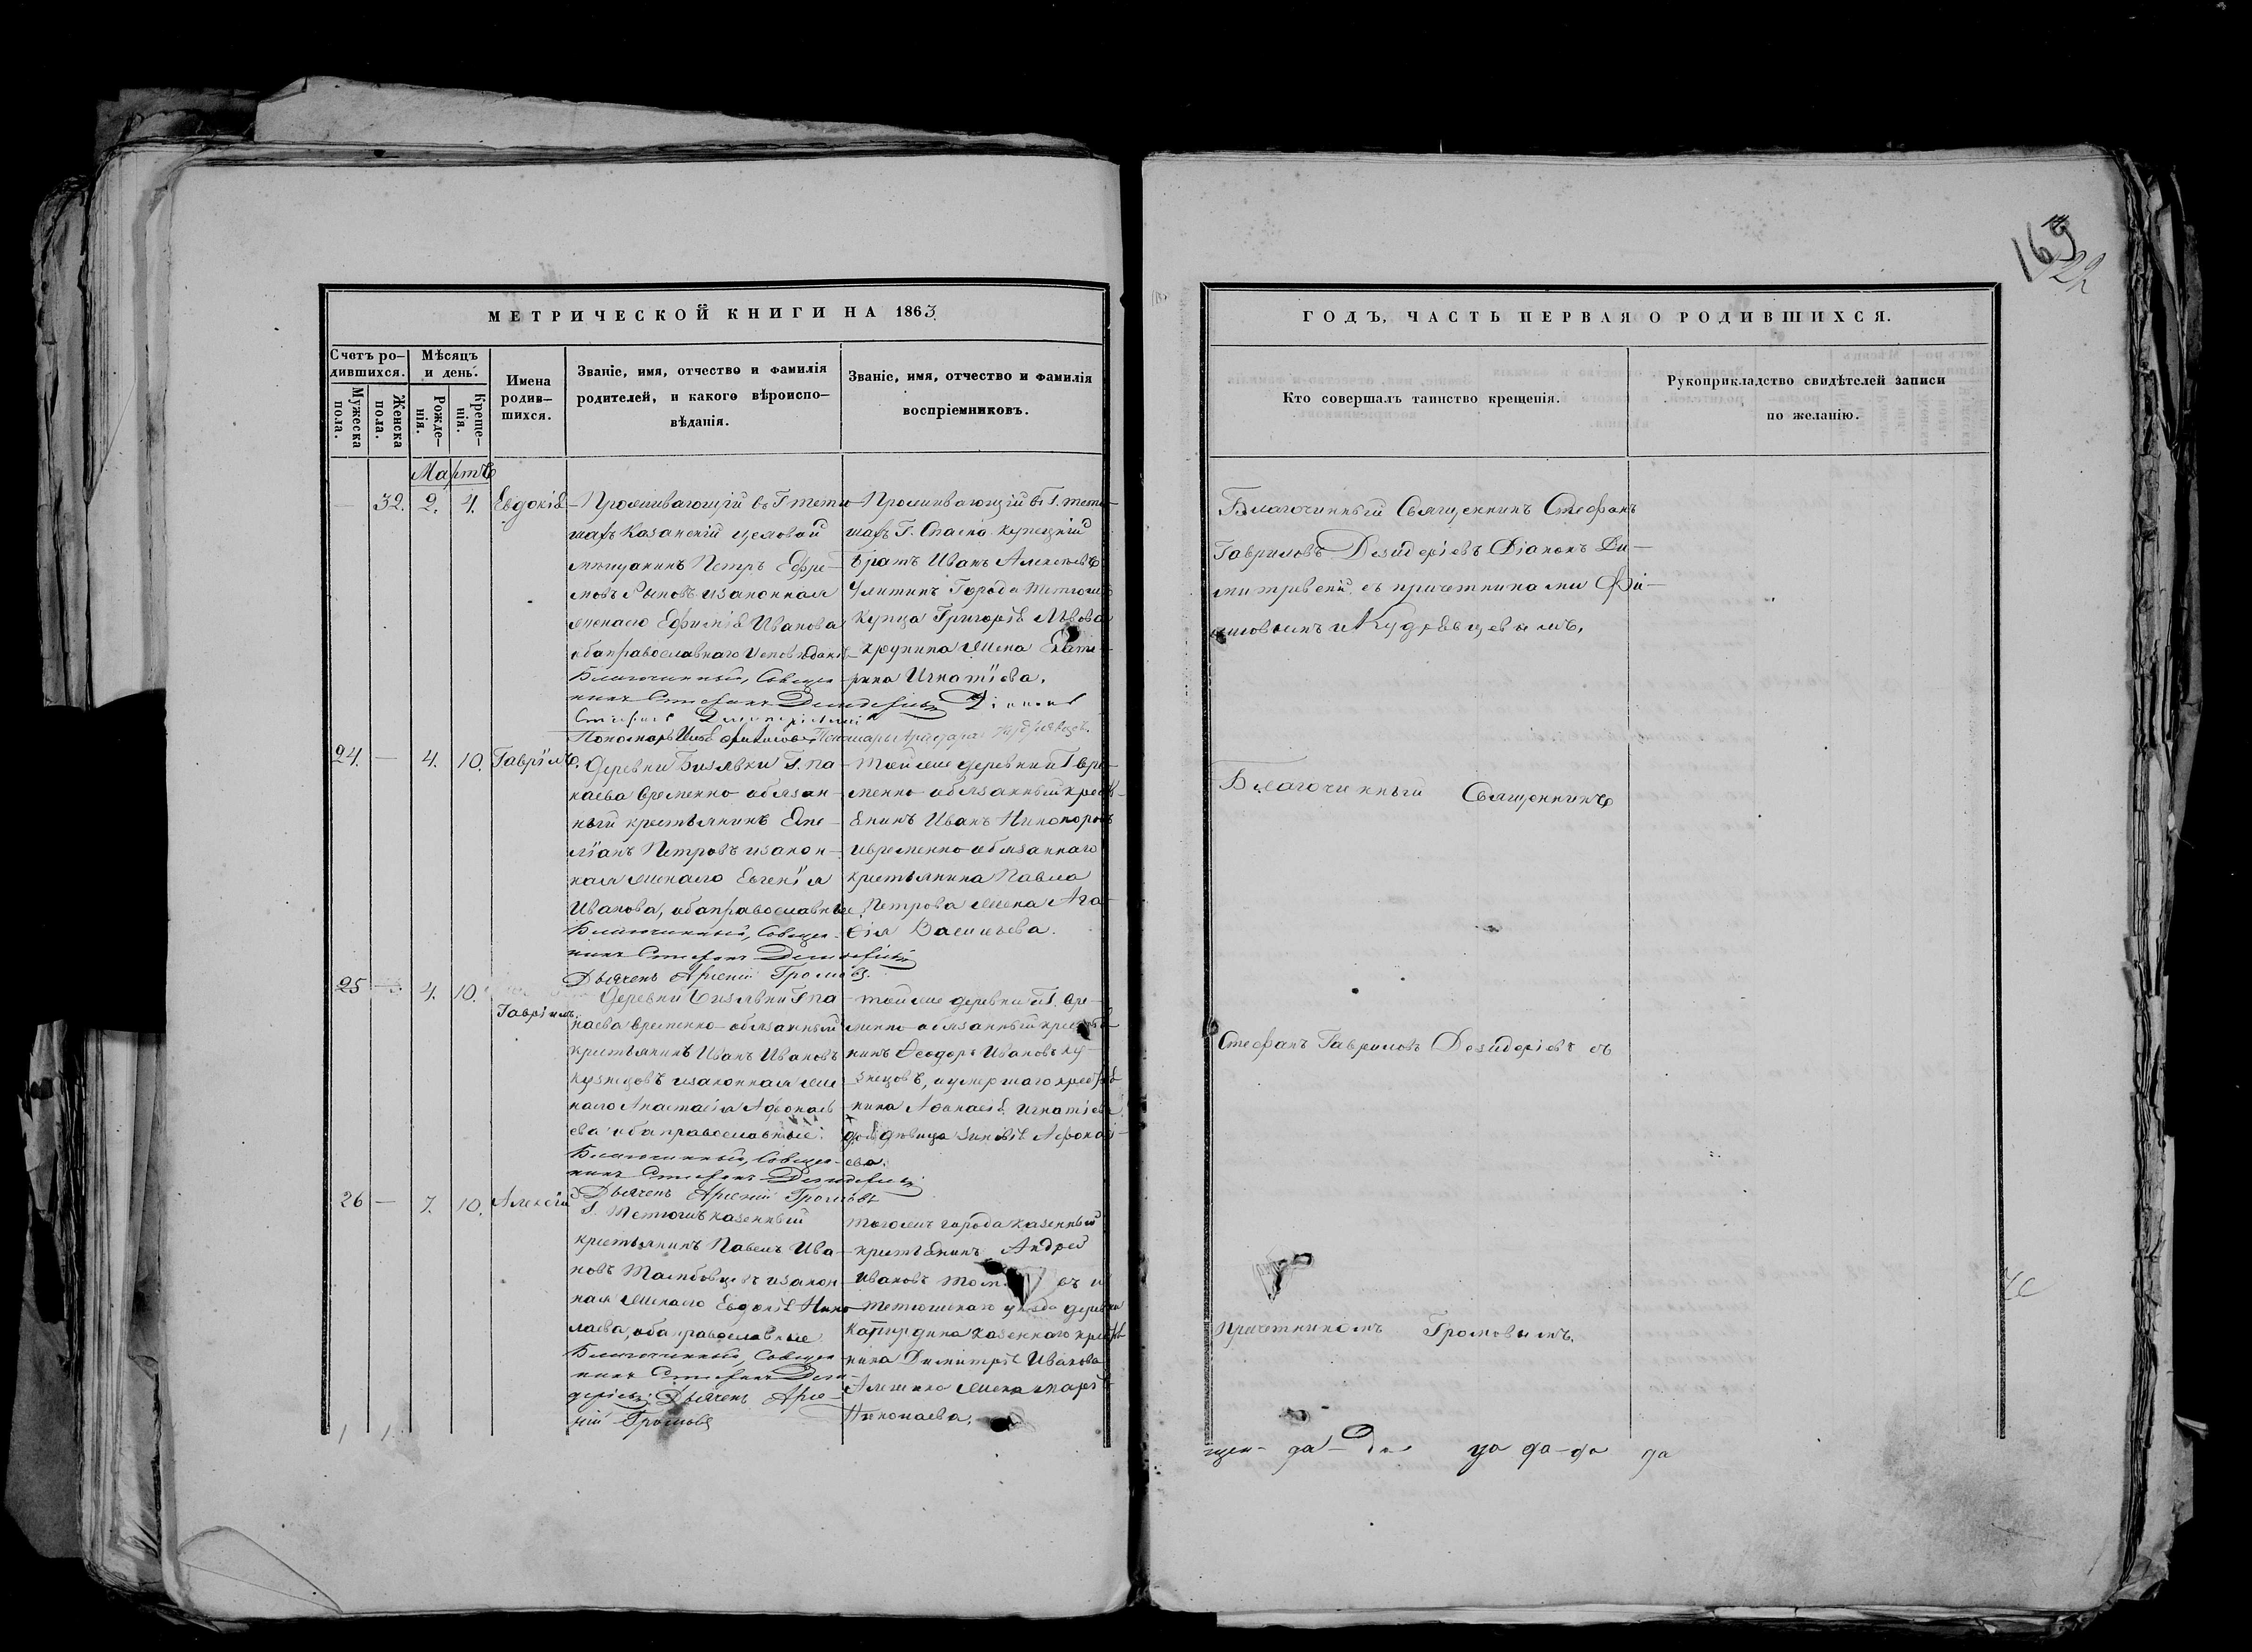 МЕТРИЧЕСКОЙ КНИГИ НА 1863
Счетъ ро-
дившихся.
Мѣсяцъ
и день.
Мужеска
пола.
Женска
пола.
Рожде-
нія.
Креще-
нія.
Имена
родив-
шихся.
Званіе, имя, отчество и фамилія
родителей, и какого вѣроиспо-
вѣданія.
Званіе, имя, отчество и фамилія
воспріемниковъ.
Мартъ
— 32. 2. 4. Евдокія
Проживающій въ Г. Тетю-
шахъ Казанскій цеховой
мѣщанинъ Петръ Ефре-
мовъ изаконная
женаего Ефимія Иванова
обаправославнаго
Благочинный, Священ-
никъ Стефанъ Дезидеріевъ
Проживающій въ Г. Тетю-
шахъ Г. Спаска купецкій
братъ Иванъ Алексѣевъ
Улитинъ Города Тетюшъ
купца Григорія Львова
Крупина жена Екате-
рина Игнатіева.
Діаконъ
24. — 4. 10. Гавріилъ.
Деревни Бизявки Г. Па-
наева временно обязан-
ный крестьянинъ Еме-
ліанъ Петровъ изакон-
ная женаего Евгенія
Иванова, обаправославные.
Благочинный, Священ-
никъ Стефанъ Дезидеріевъ
Дьячекъ Арсеній Громовъ.
Тойже деревни и Г. вре-
менно обязанный крест-
янинъ Иванъ Никоноровъ
ивременно обязаннаго
крестьянина Павла
Петрова жена Ага-
ѳія Васильева.
25 4. 10. Гавріилъ.
Деревни Бизявки Г. Па-
наева временно-обязанный
крестьянинъ Иванъ Ивановъ
Кузнецовъ изаконная же-
наего Анастасія Афонась-
ева обаправославные.
Благочинный, Священ-
никъ Стефанъ Дезидеріевъ
Дьячекъ Арсеній Громовъ
Тойже деревни и Г. вре-
менно-обязанный кресть-
нинъ Ѳеодоръ Ивановъ Ку-
знецовъ, иумершаго кресть-
нина Афанасія Игнатіева
дѣвица Зиновія Афонась-
ева.
26 — 7. 10. Алексій
Г. Тетюшъ казенный
крестьянинъ Павелъ Ива-
новъ Тамбовцевъ изакон-
ная женаего Евдокія Нико-
лаева, обаправославные
Благочинный, Священ-
никъ Стефанъ Дези-
деріевъ Дьячекъ Арсе-
ній Громовъ
Тогожъ города казенный
крестьянинъ Андрей
Ивановъ
Тетюшскаго уѣзда деревни
казеннаго кресть-
нина Димитрія Иванова
жена Марія
Николаева.
ГОДЪ, ЧАСТЬ ПЕРВАЯ О РОДИВШИХСЯ.
Кто совершалъ таинство крещенія.
Рукоприкладство свидѣтелей записи
по желанію.
Благочинный Священникъ Стефанъ
Гавриловъ Дезидеріевъ Діаконъ Ди-
митріевскій съ причетниками Фи-
иКудрявцевымъ.
Благочинный Священникъ
Стефанъ Гавриловъ Дезидеріевъ съ
причетникомъ Громовымъ.
щен- да-да да-да да
169
122